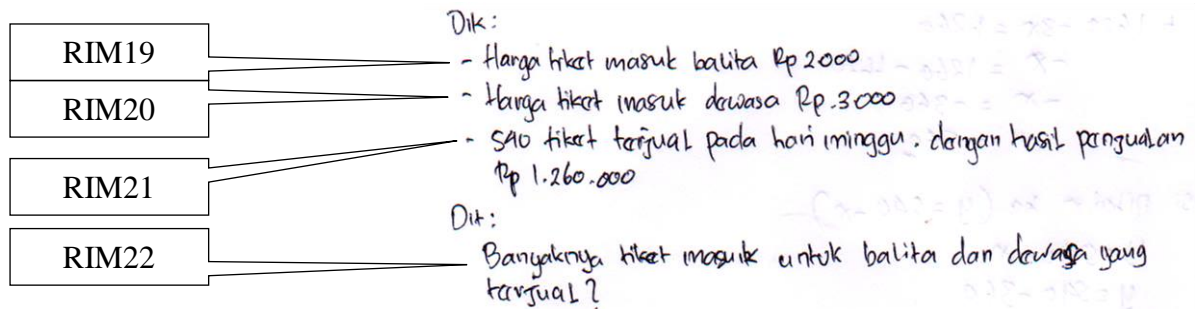 Dik:
RIM19
- Harga tiket masuk balita Rp 2000
RIM20
- Harga tiket masuk dewasa Rp. 3000
RIM21
- 540 tiket terjual pada hari minggu. dengan hasil penjualan
Rp 1.260.000
Dit:
RIM22
Banyaknya tiket masuk untuk balita dan dewasa yang
terjual?